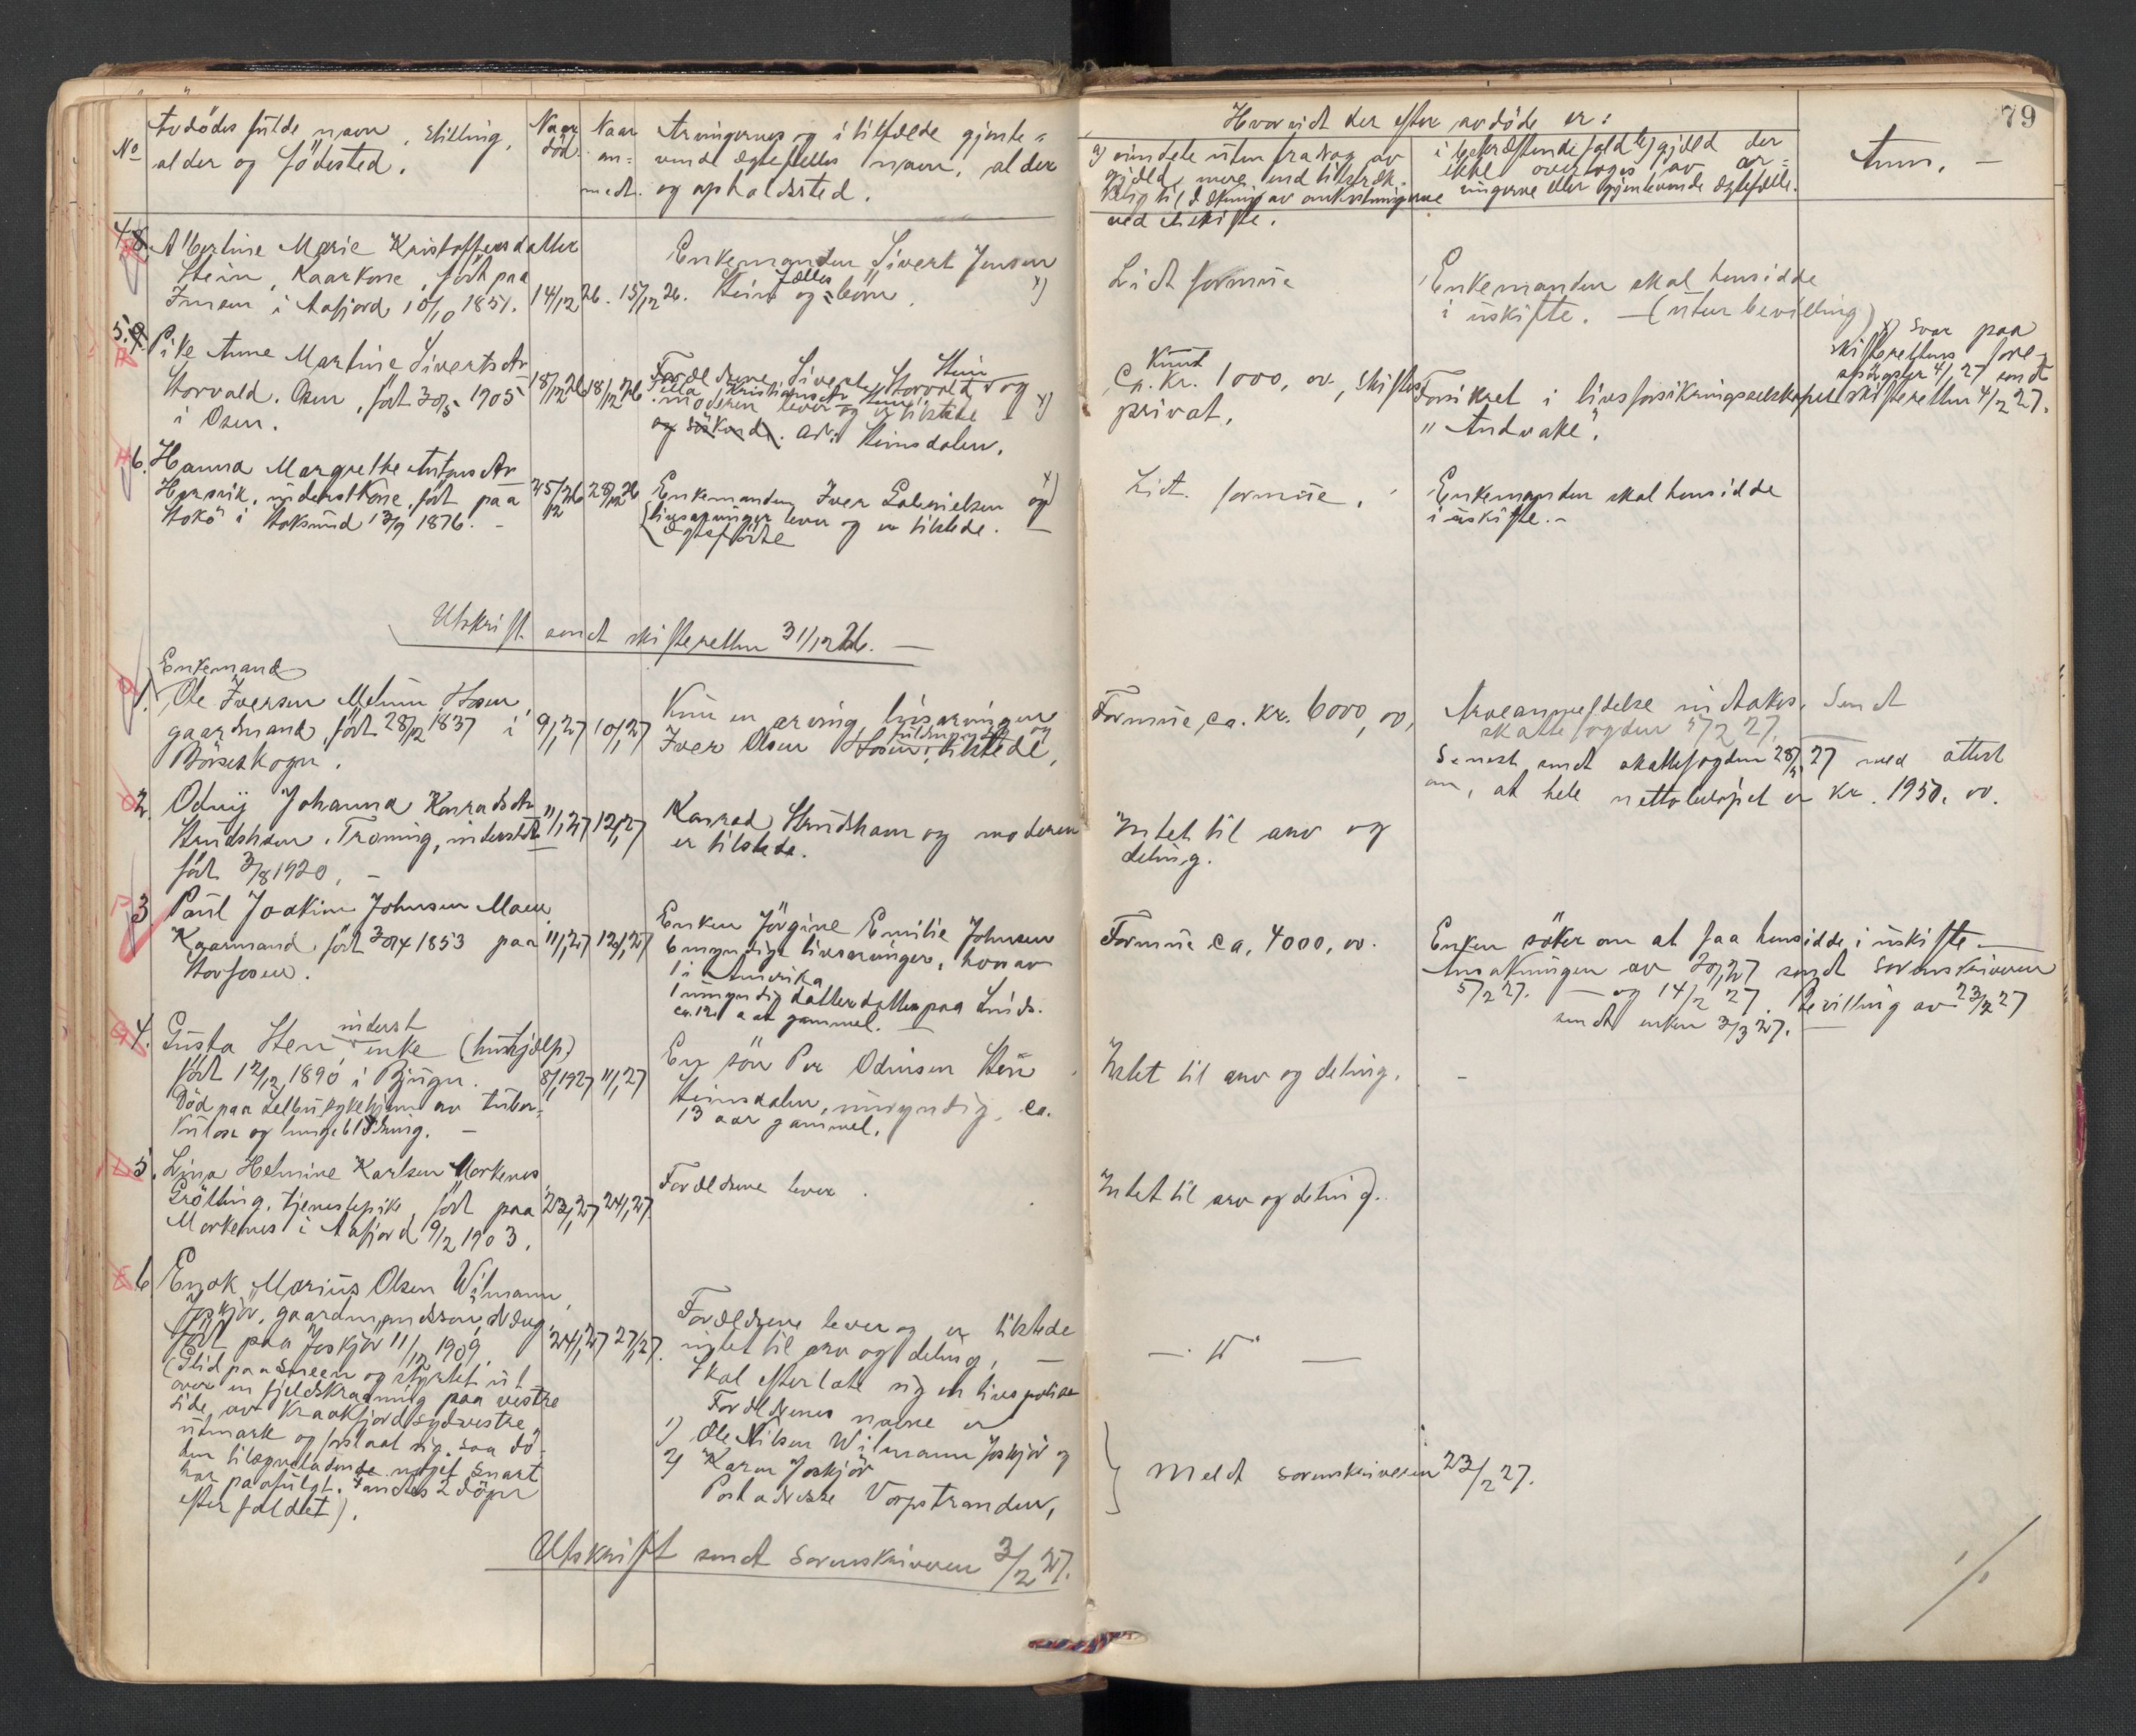 79
No
Avdödes fulde navn, stilling,
alder og födested.
Naar
död.
Naar
an=
meldt.
Arvingernes og i tilfælde gjenle=
vende ægtefælles navn, alder
og opholdssted.
Hvorvidt der efter avdöde er:
a) eiendele uten fradrag av
gjæld, mere end tilstræk-
kelig til dækning av omkostningerne
ved et skifte.
i bekræftende fald b) gjæld der
ikke overtages av ar=
vingerne eller gjenlevende ægtefælle.
Anm. —
4.
Albertine Marie Kristoffersdatter
Stein, Kaarkone, födt paa
i Aafjord 10/10 1851.
14/12 26.
15/12 26.
Enkemanden Sivert Jensen
fælles
Stein og börn. x)
Lidt formue
Enkemanden skal hensidde
i uskifte. — (uten bevilling)
5.
Pike Anne Martine Sivertsdtr
Storvold, Osen, födt 30/5 1905
i Osen.
18/12 26
18/12 26
Stein
Forældrene Sivert Storvold og
moderen lever og er tilstede x)
og söskende. adr. Steinsdalen.
Kunt
Ca. Kr. 1000, oo, skiftes
privat.
Forsikret i livsforsikringsselskapet
"Andvake".
x) Svar paa
skifterettens fore-
spörgsler 4/1 27 sendt
skifteretten 4/2 27.
6.
Hanna Margrethe Antonsdtr
Harsvik, inderstkone, födt paa
Stokö i Stoksund 13/9 1876. —
25/12 26
28/12 26
Enkemanden Iver Gabrielsen og x)
livsarvinger lever og er tilstede. —
ægtefödte
Lidt formue.
Enkemanden skal hensidde
i uskifte. —
Utskrift sendt skifteretten 31/12 26. —
1.
Enkemand
Ole Iversen Melum, Hosen,
gaardmand, födt 28/12 1837 i
Börseskogn.
9/1 27
10/1 27
Kun en arving, livsarvingen
fuldmyndig og
Iver Olsen Hosen, tilstede.
Formue ca. kr. 6000, oo,
Arveanmeldelse indtakes. Sendt
skattefogden 5/2 27.
Senest sendt skattefogden 28/5 27 med attest
om, at hele nettobelöpet er kr. 1950, oo.
2.
Odny Johanna Konradsdtr
Strudshavn, Træning, inderstdtr
födt 3/8 1920. —
11/1 27
12/1 27
Konrad Strudshavn og moderen
er tilstede.
Intet til arv og
deling.
3
Paul Joakim Johnsen Moen
Kaarmand, födt 30/4 1853 paa
Storfosen.
11/1 27
12/1 27
Enken Jörgine Emilie Johnsen
6 myndige livsarvinger, hvorav
1 i Amerika
1 umyndig datterdatter paa
ca. 12 aar gammel. —
Formue ca, 4000, oo.
Enken söker om at faa hensidde i uskifte. —
Ansökningen av 30/1 27 sendt sorenskriveren
5/2 27. — og 14/2 27. Bevilling av 23/2 27
sendt enken 3/3 27. —
4.
inderst
Gusta Sten enke (hushjælp)
födt 12/12 1890 i Bjugn.
Död paa sykehjem av tuber-
kulose og lungeblödning. —
8/1 1927
11/1 27
En sön Per Odinsen Sten
Steinsdalen, umyndig, ca.
13 aar gammel.
Intet til arv og deling. —
5.
Lina Helmine Karlsen Morkenes
Grötting, tjenestepike, födt paa
Morkenes i Aafjord 9/2 1903.
23/1 27
24/1 27.
Forældrene lever.
Intet til arv og deling.
6
Enok Marius Olsen Wilmann,
Joskjör, gaardmandssön, dreng,
födt paa Joskjör 11/12 1909.
(Glid paa sneen og styrtet ut
over en fjeldskraaning paa vestre
side av Kraakfjord sydvestre
utmark og forslaat sig, saa dö-
den tilsyneladende meget snart
har paafulgt. Fandtes 2 dögn
efter faldet).
24/1 27
27/1 27.
Forældrene lever og er tilstede
intet til arv og deling. —
Skal efterlate sig en livspolise
Forældrenes navne er
1) Ole Nilsen Wilmann Joskjör og
2) Karen Joskjör
Postadresse Vorpstranden,
— " —
Meldt sorenskriveren 23/2 27.
Utskrift sendt sorenskriveren 3/2 27.